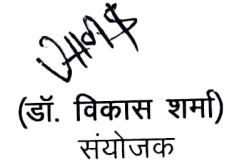 (डॉ. विकास शर्मा)
संयोजक